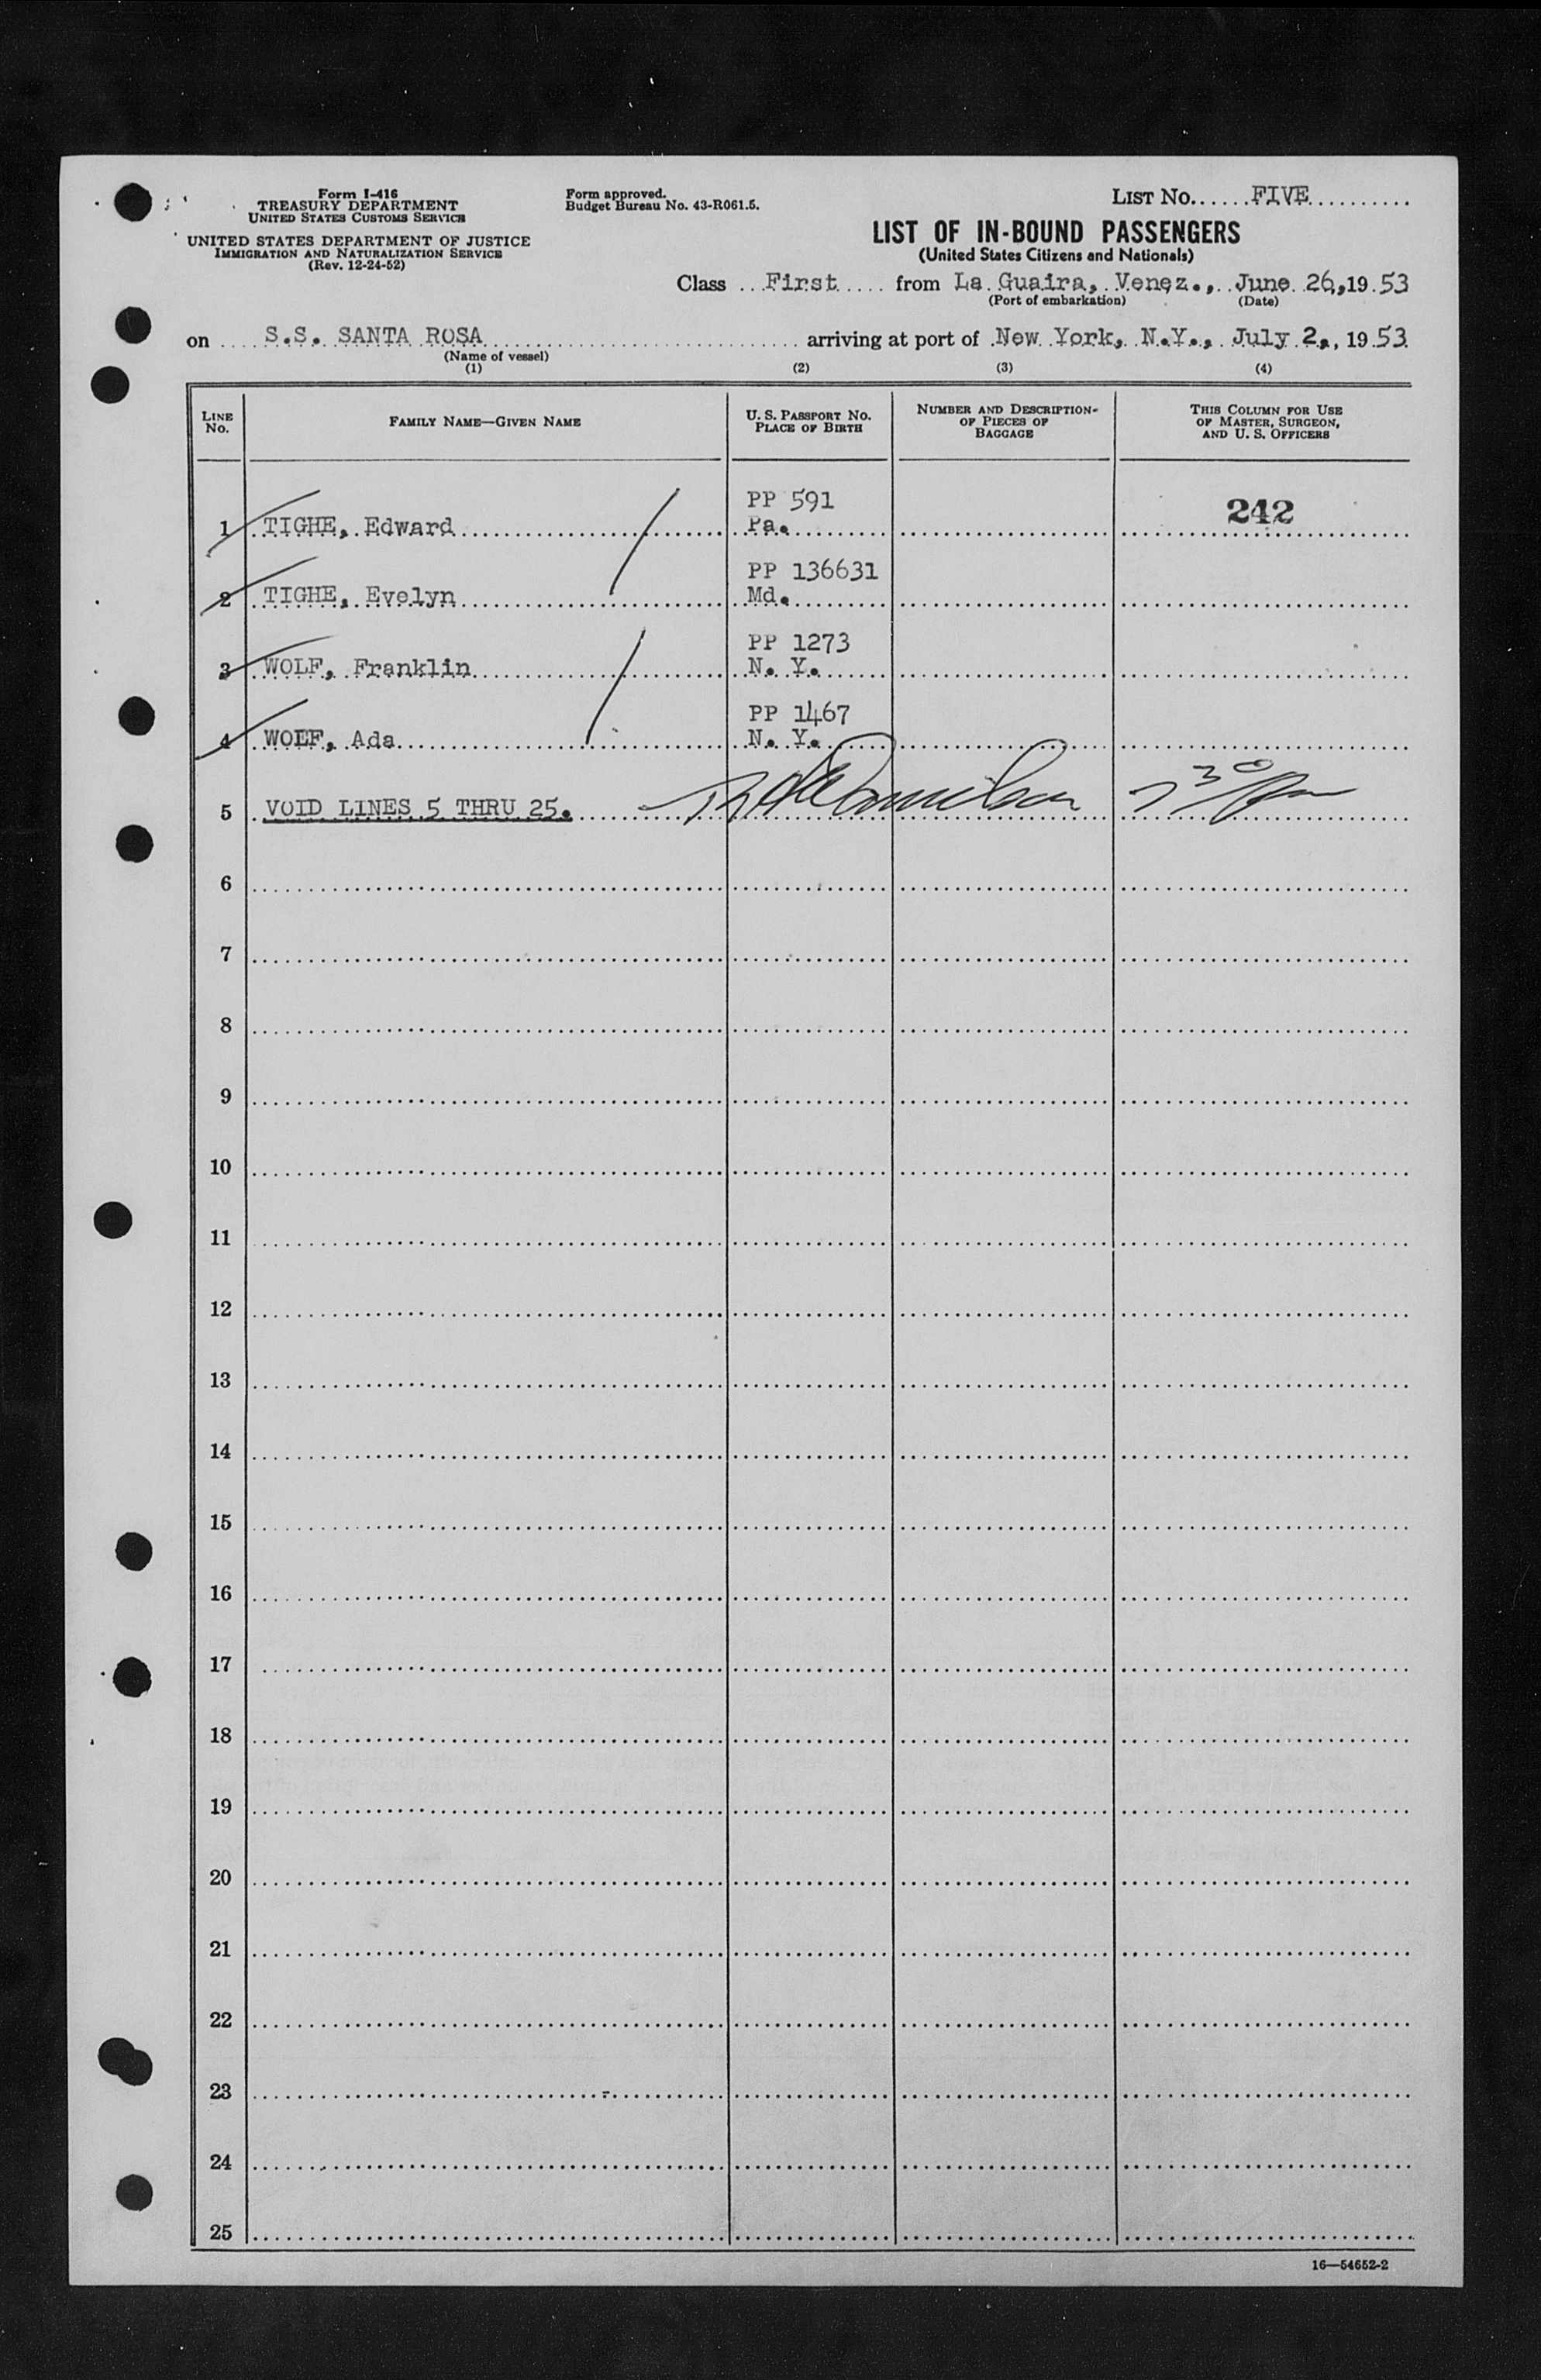 Form I-416
TREASURY DEPARTMENT
UNITED STATES CUSTOMS SERVICE
UNITED STATES DEPARTMENT OF JUSTICE
IMMIGRATION AND NATURALIZATION SERVICE
(Rev. 12-24-52)
Form approved.
Budget Bureau No. 43-R061.5.
LIST No. FIVE
LIST OF IN-BOUND PASSENGERS
(United States Citizens and Nationals)
Class First from La Guaira, Venez., June 26, 1953
(Port of embarkation) (Date)
on S.S. SANTA ROSA arriving at port of New York, N.Y., July 2., 1953
(Name of vessel)
(1) (2) (3) (4)
LINE No. FAMILY NAME—GIVEN NAME U. S. PASSPORT No. PLACE OF BIRTH NUMBER AND DESCRIPTION OF PIECES OF BAGGAGE THIS COLUMN FOR USE OF MASTER, SURGEON, AND U. S. OFFICERS
PP 591
1 TIGHE, Edward Pa. 242
PP 136631
2 TIGHE, Evelyn Md.
PP 1273
3 WOLF, Franklin N. Y.
PP 1467
4 WOLF, Ada N. Y.
5 VOID LINES 5 THRU 25.
6
7
8
9
10
11
12
13
14
15
16
17
18
19
20
21
22
23
24
25
16—54652-2